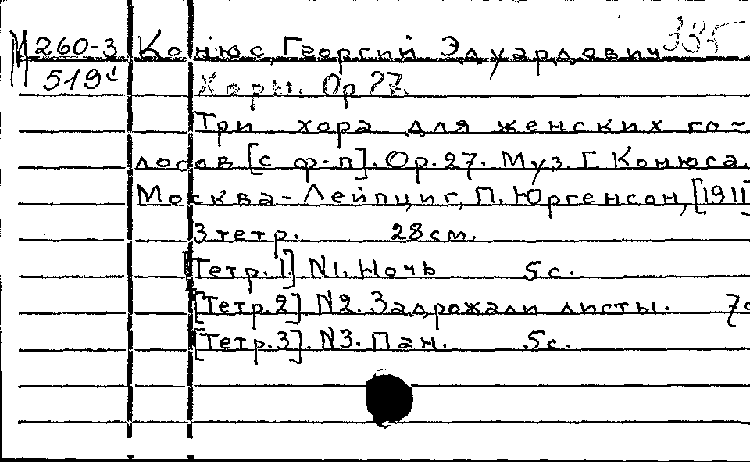 М 260-3 Конюс, Георгий Эдуардович 335
519
Хоры. Ор 27.
Три хора для женских го-
лосов [с ф-п]. Ор. 27. Муз. Г. Конюса.
Москва - Лейпциг, П. Юргенсон, [1911]
3 тетр. 28 см.
[Тетр. 1] N1. Ночь 5 с.
[Тетр. 2] N2. Задрожали листы. 7с
[Тетр. 3]. N3. Пан. 5с.